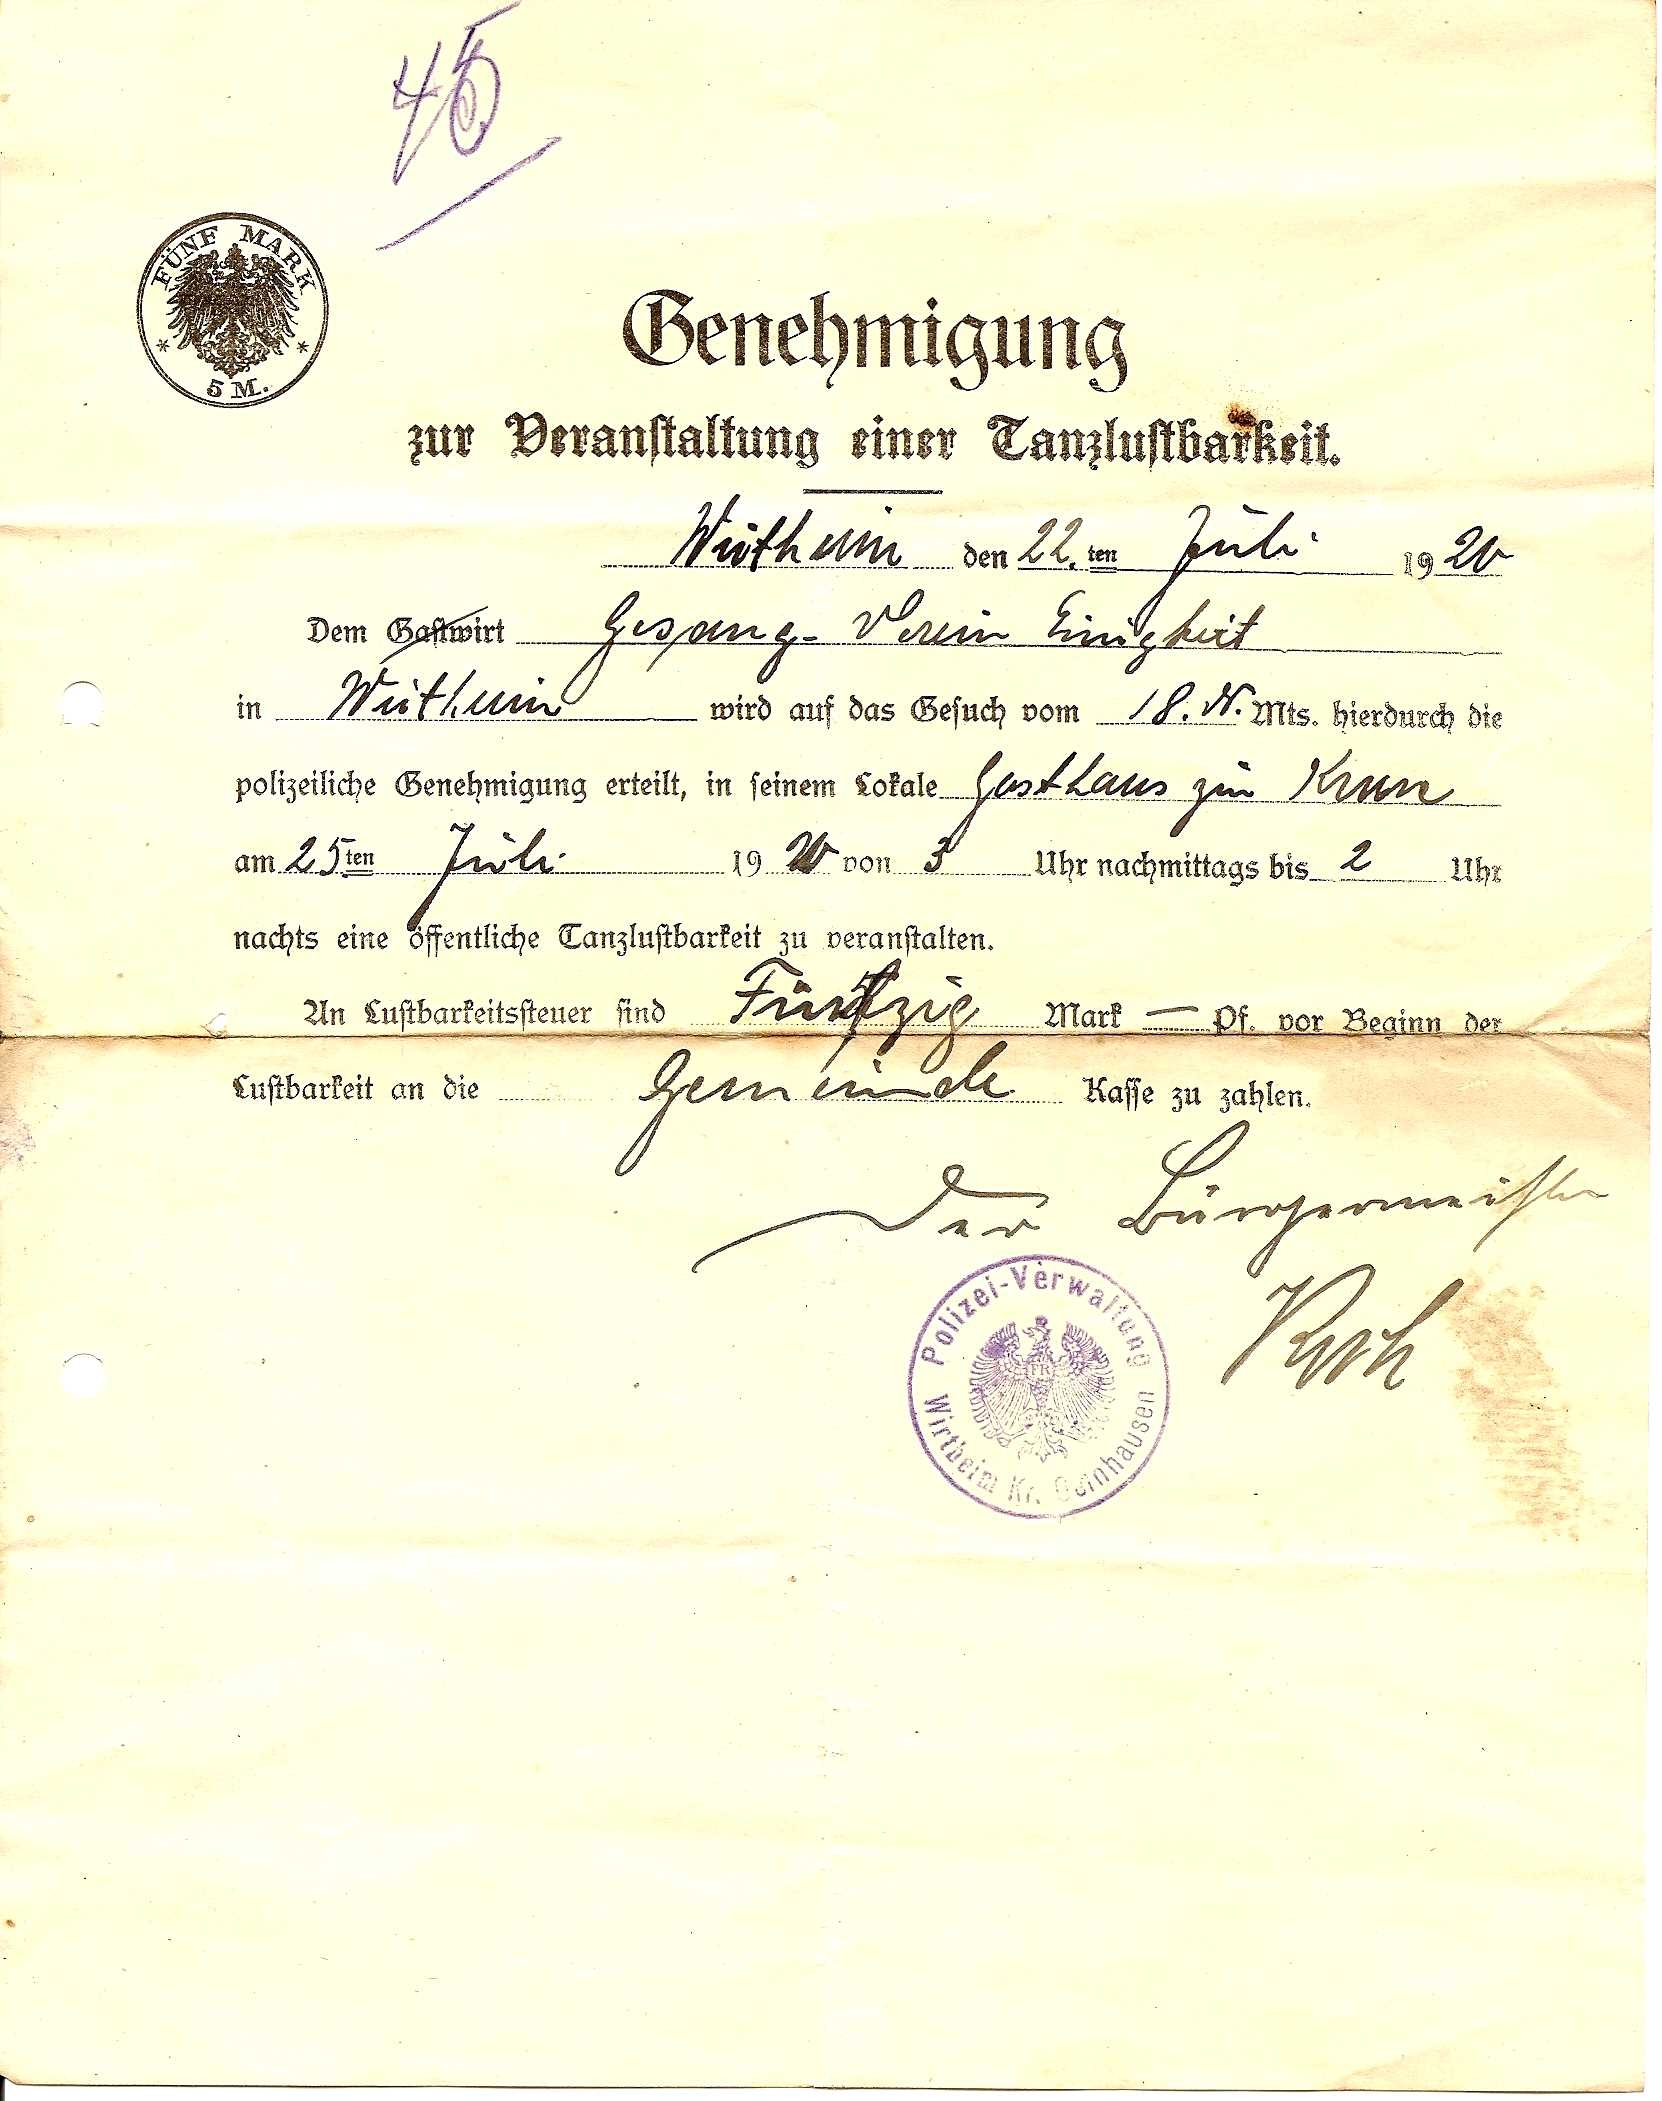 45
FÜNF MARK
* 5 M. *
Genehmigung
zur Veranstaltung einer Tanzlustbarkeit.
Wirtheim den 22. ten Juli 1920
Dem Gastwirt Gesang-Verein Einigkeit
in Wirtheim wird auf das Gesuch vom 18. d. Mts. hierdurch die
polizeiliche Genehmigung erteilt, in seinem Lokale Gasthaus zur Krone
am 25ten Juli 1920 von 3 Uhr nachmittags bis 2 Uhr
nachts eine öffentliche Tanzlustbarkeit zu veranstalten.
An Lustbarkeitssteuer sind Fünfzig Mark — Pf. vor Beginn der
Lustbarkeit an die Gemeinde Kasse zu zahlen.
Der Bürgermeister
Polizei-Verwaltung
FR
Wirtheim Kr. Gelnhausen